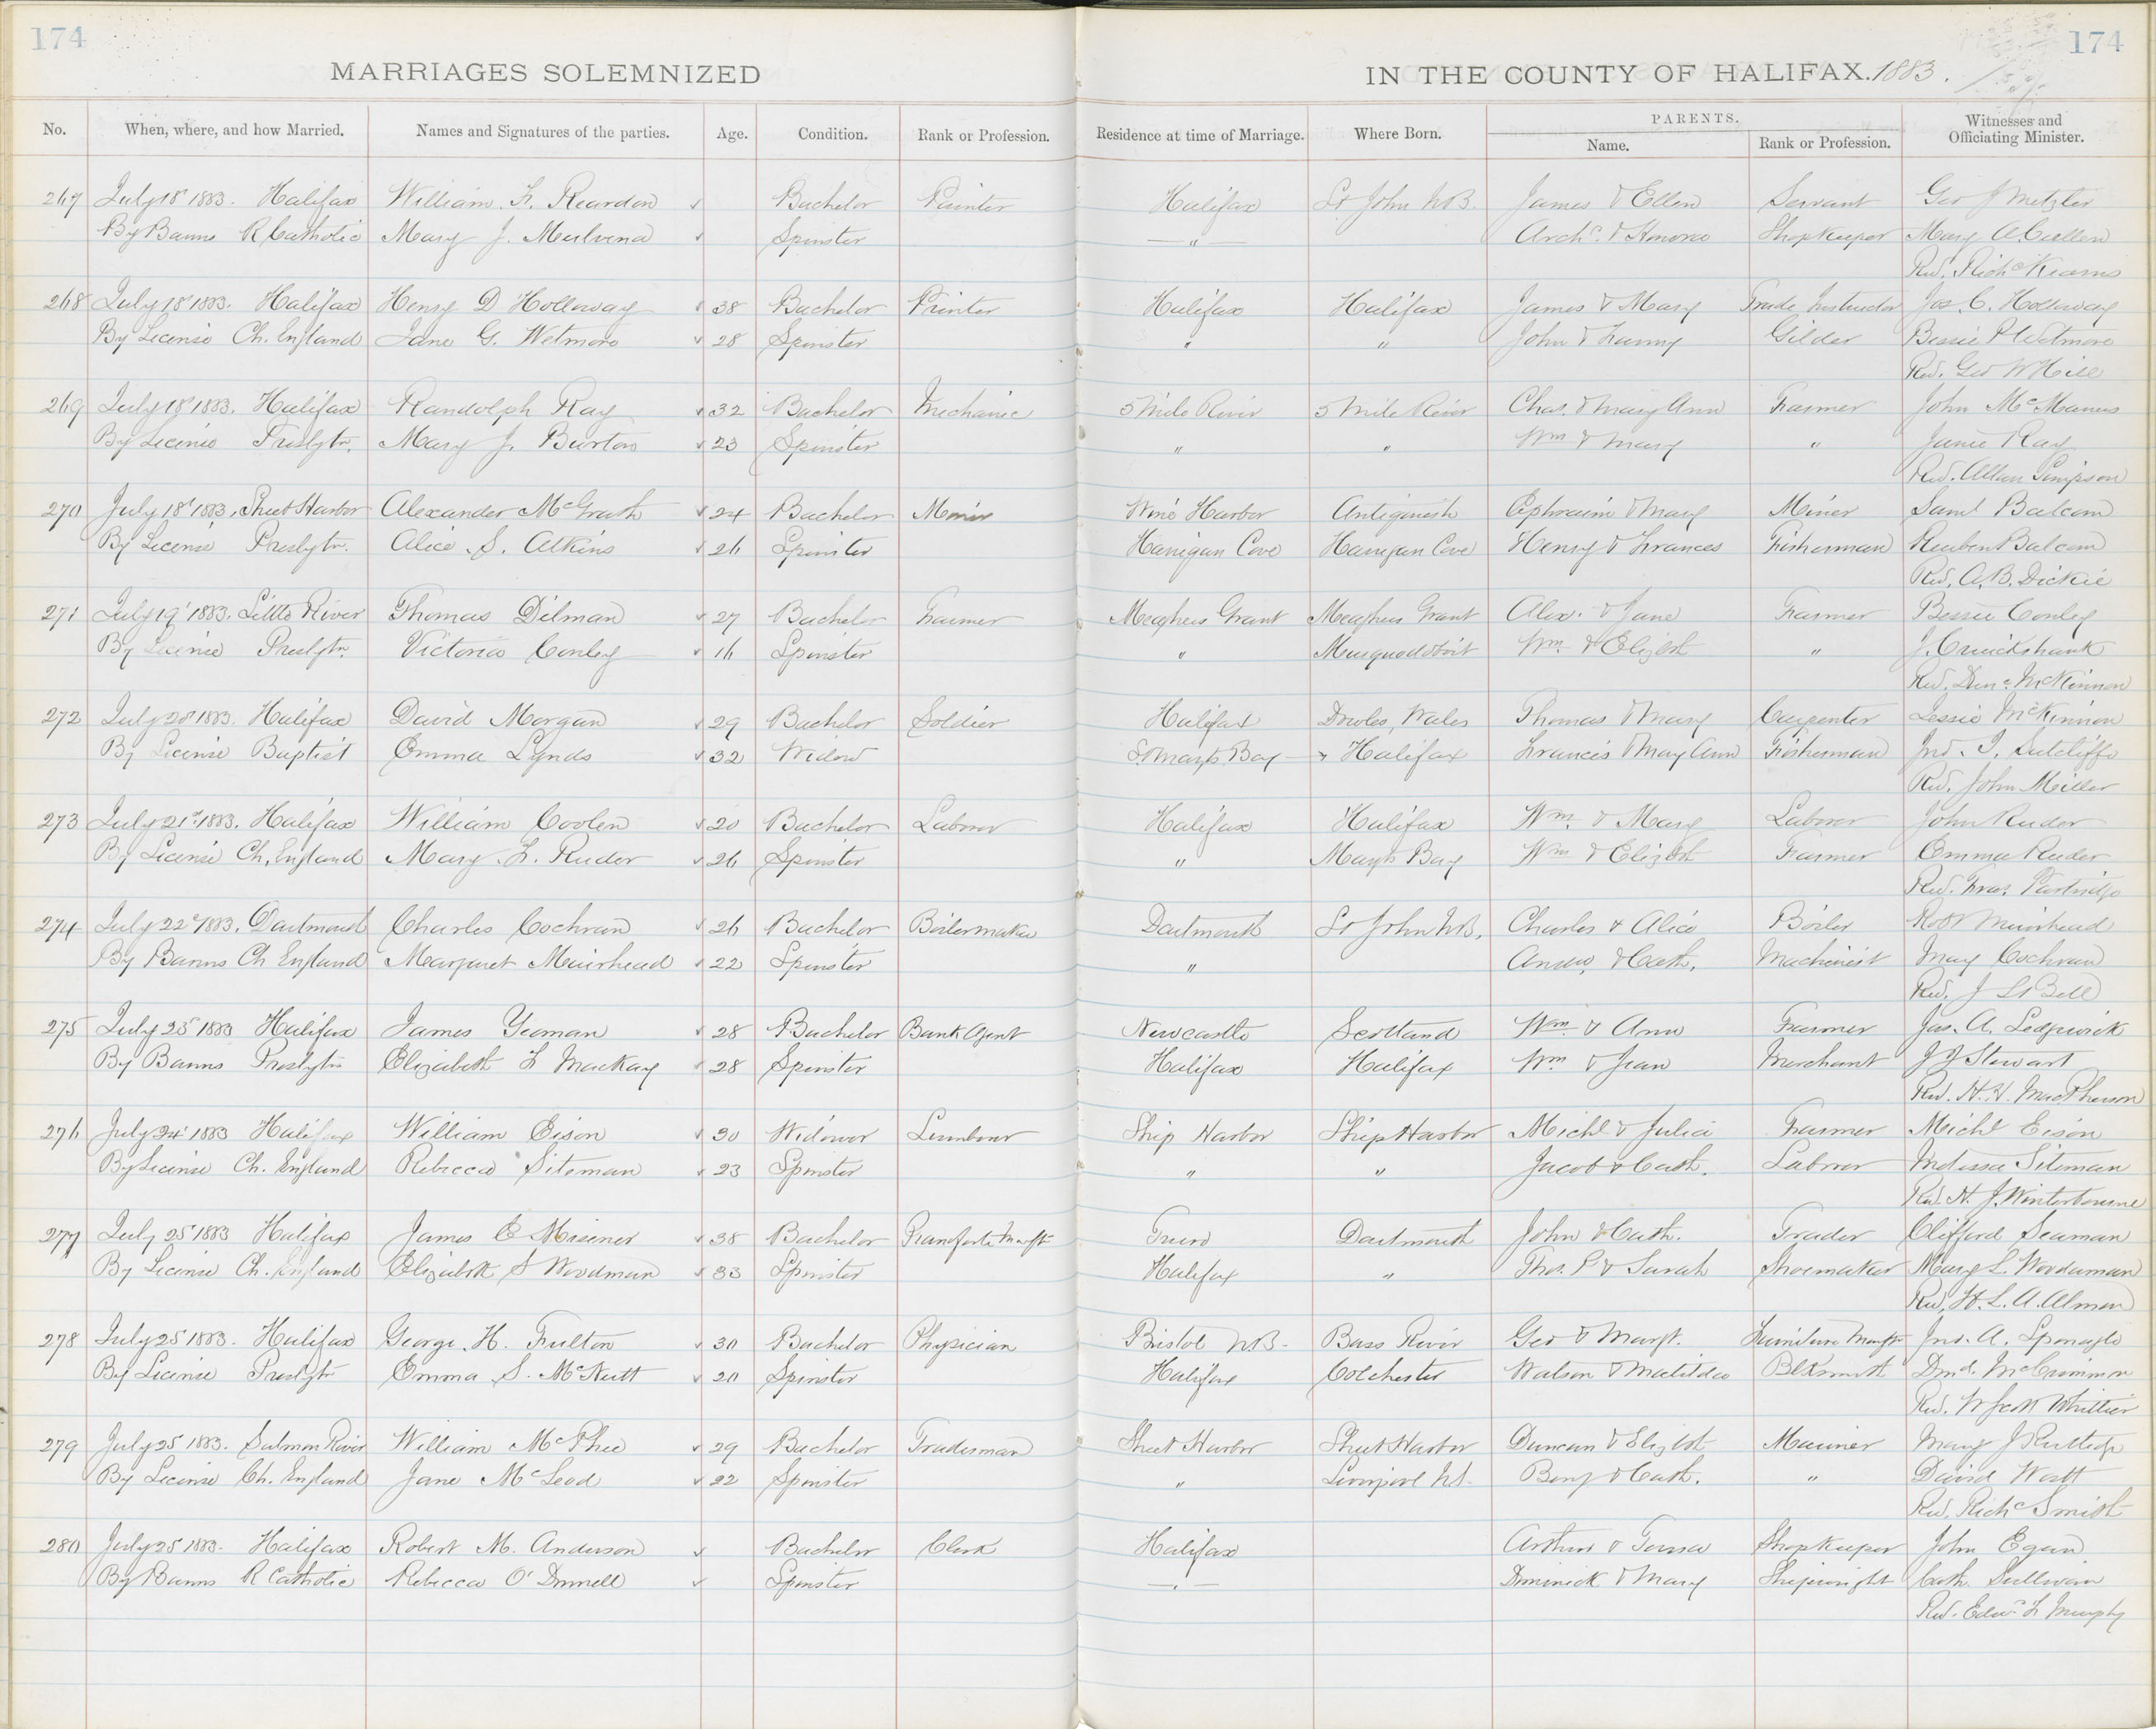 174
174
MARRIAGES SOLEMNIZED
IN THE COUNTY OF HALIFAX. 1883.
No. When, where, and how Married. Names and Signatures of the parties. Age. Condition. Rank or Profession. Residence at time of Marriage. Where Born. PARENTS. Name. Rank or Profession. Witnesses and Officiating Minister.
267 July 18 1883. Halifax William F. Reardon Bachelor Painter Halifax St John N.B. James & Ellen Servant Geo J Metzler
By Banns R Catholic Mary J. Mulvena Spinster " Archd. & Honora Shopkeeper Mary A. Cullen
Rev. Richd Kearns
268 July 18 1883. Halifax Henry D Holloway 38 Bachelor Printer Halifax Halifax James & Mary Trade Instructor Jas. C. Holloway
By License Ch. England Jane G. Wetmore 28 Spinster " " John & Fanny Gilder Bessie P Wetmore
Rev. Geo W Hill
269 July 18 1883. Halifax Randolph Ray 32 Bachelor Mechanic 5 Mile River 5 Mile River Chas. & Mary Ann Farmer John McManus
By License Presbytn. Mary J. Burton 23 Spinster " " Wm & Mary " Janie Ray
Rev. Allan Simpson
270 July 18 1883, Sheet Harbor Alexander McGrath 24 Bachelor Miner Wine Harbor Antigonish Ephraim & Mary Miner Saml Balcom
By License Presbytn. Alice S. Atkins 26 Spinster Harrigan Cove Harrigan Cove Henry & Frances Fisherman Reuben Balcom
Rev. A. B. Dickie
271 July 19 1883. Little River Thomas Dilman 27 Bachelor Farmer Meaghers Grant Meaghers Grant Alex. & Jane Farmer Bessie Conley
By License Presbytn. Victoria Conley 16 Spinster " Musquodoboit Wm & Elizbth " J. Cruickshank
Rev. Dunc. McKinnon
272 July 20 1883. Halifax David Morgan 29 Bachelor Soldier Halifax Wales Thomas & Mary Carpenter Jessie McKinnon
By License Baptist Emma Lynds 32 Widow St Marys Bay Halifax Francis & Mary Ann Fisherman Jno. J. Sutcliffe
Rev. John Miller
273 July 21st 1883. Halifax William Coolen 20 Bachelor Laborer Halifax Halifax Wm. & Mary Laborer John Ruder
By License Ch. England Mary F. Ruder 26 Spinster " Marys Bay Wm & Elizbth Farmer Emma Ruder
Rev. Fras. Partridge
274 July 22d 1883. Dartmouth Charles Cochran 26 Bachelor Boilermaker Dartmouth St John N.B. Charles & Alice Boiler Robt Muirhead
By Banns Ch England Margaret Muirhead 22 Spinster " Andw. & Cath. Machinist May Cochran
Rev. J L Bell
275 July 23 1883 Halifax James Yeoman 28 Bachelor Bank Agent Newcastle Scotland Wm & Ann Farmer Jas. A. Sedgwick
By Banns Presbytn Elizabeth F Mackay 28 Spinster Halifax Halifax Wm & Jean Merchant J J Stewart
Rev. H. H. MacPherson
276 July 24 1883 Halifax William Eison 30 Widower Ship Harbor Ship Harbor Michl & Julia Farmer Michl Eison
By License Ch. England Rebecca Siteman 23 Spinster " " Jacob & Cath. Laborer Melissa Siteman
Rev. H. J. Winterbourne
277 July 25 1883 Halifax James E Misener 38 Bachelor Pianoforte Manftr Truro Dartmouth John & Cath. Trader Clifford Seaman
By License Ch. England Elizabeth S Woodman 33 Spinster Halifax " Thos. P & Sarah Shoemaker Mary L. Woodaman
Rev. H. L. A. Almon
278 July 25 1883. Halifax George H. Fulton 30 Bachelor Physician Bristol N.B. Bass River Geo & Margt. Furniture Manftr Jno. A. Sponagle
By License Presbytn Emma S. McNutt 20 Spinster Halifax Colchester Watson & Matilda Blksmith Dond. McCrimmon
Rev. W Scott Whittier
279 July 25 1883. Salmon River William McPhee 29 Bachelor Tradesman Sheet Harbor Sheet Harbor Duncan & Elizbth Mariner Mary J Rutledge
By License Ch. England Jane McLeod 22 Spinster " Liverpool N.S. Benj & Cath. " David Watt
Rev. Richd Smith
280 July 25 1883. Halifax Robert M. Anderson Bachelor Clerk Halifax Arthur & Teresa Shopkeeper John Egan
By Banns R Catholic Rebecca O'Donnell Spinster " Dominick & Mary Shipwright Cath. Sullivan
Rev. Edwd F Murphy